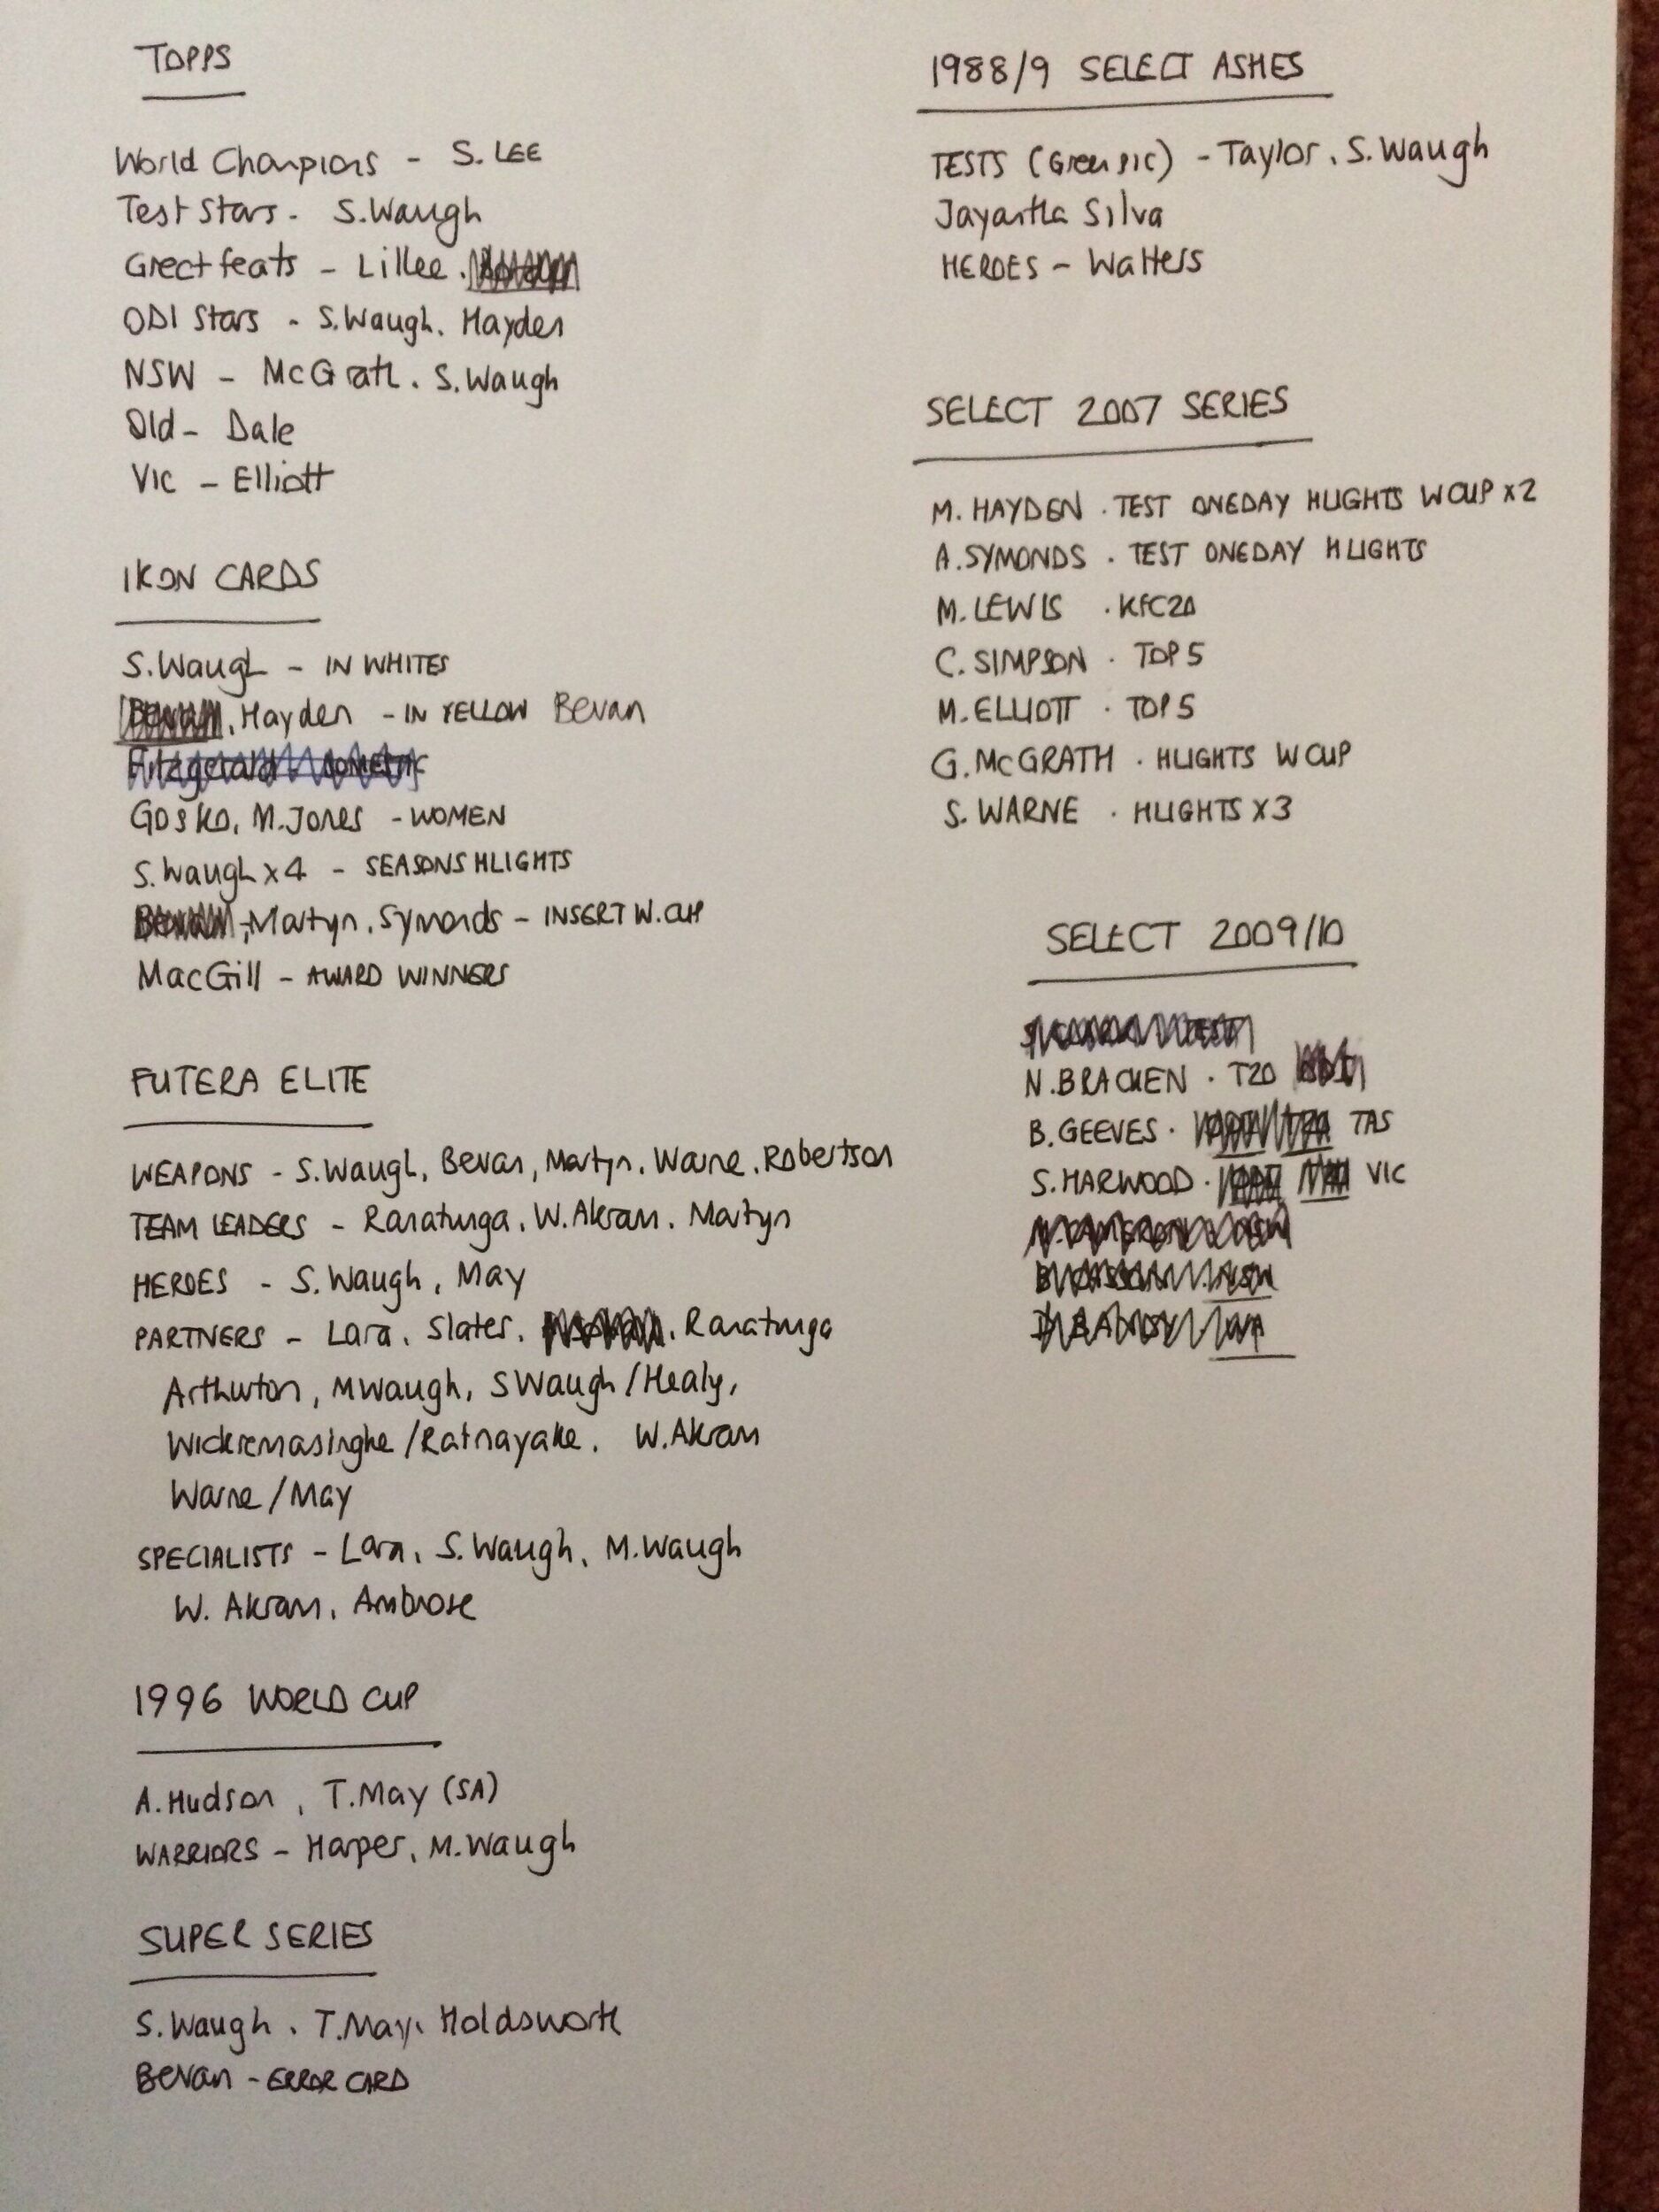 TOPPS
World Champions - S. LEE
Test Stars - S. Waugh
Great feats - Lillee.
ODI Stars - S. Waugh. Hayden
NSW - McGrath. S. Waugh
Qld - Dale
Vic - Elliott
IKON CARDS
S. Waugh - IN WHITES
Hayden - IN YELLOW Bevan
Goszko, M. Jones - WOMEN
S. Waugh x 4 - SEASONS HLIGHTS
Martyn. Symonds - INSERT W. CUP
MacGill - AWARD WINNERS
FUTERA ELITE
WEAPONS - S. Waugh, Bevan, Martyn. Warne. Robertson
TEAM LEADERS - Ranatunga. W. Akram. Martyn
HEROES - S. Waugh, May
PARTNERS - Lara. Slater. Ranatunga
Arthurton, M Waugh, S Waugh / Healy,
Wickremasinghe / Ratnayake. W. Akram
Warne / May
SPECIALISTS - Lara, S. Waugh, M. Waugh
W. Akram, Ambrose
1996 WORLD CUP
A. Hudson, T. May (SA)
WARRIORS - Harper, M. Waugh
SUPER SERIES
S. Waugh. T. May. Holdsworth
Bevan - ERROR CARD
1988/9 SELECT ASHES
TESTS (Green pic) - Taylor. S. Waugh
Jayantha Silva
HEROES - Walters
SELECT 2007 SERIES
M. HAYDEN . TEST ONEDAY HLIGHTS W CUP x 2
A. SYMONDS . TEST ONEDAY HLIGHTS
M. LEWIS . KFC20
C. SIMPSON . TOP 5
M. ELLIOTT . TOP 5
G. McGRATH . HLIGHTS W CUP
S. WARNE . HLIGHTS X 3
SELECT 2009/10
N. BRACKEN . T20
B. GEEVES . TAS
S. HARWOOD . VIC